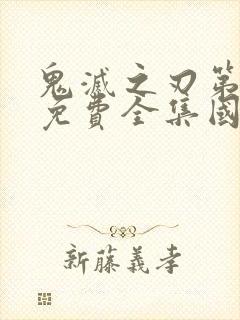 鬼滅之刃第
免費全集國
新藤義孝